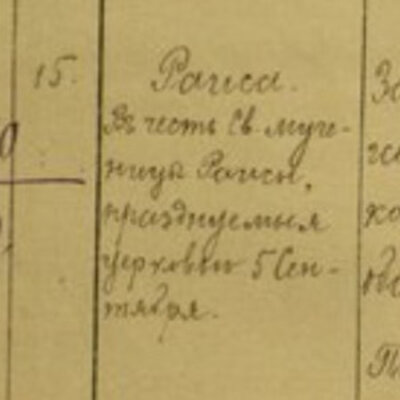 15.
Раиса.
Въ честь Св. муче-
ницы Раисы,
празднуемыя
церковью 5 Сен-
тября.